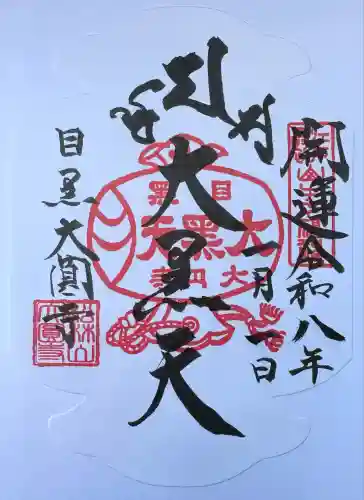 開運
令和八年
一月一日
大黒天
目黒
大黒天
大円寺
目黒 大圓寺